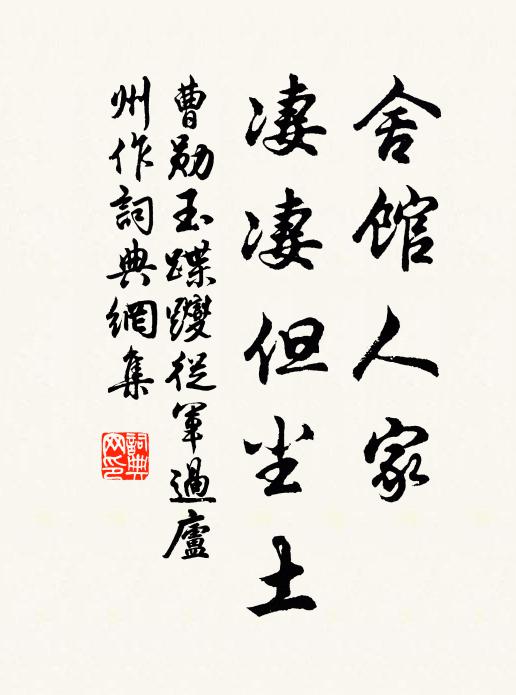 舍館人家
淒淒但尘土
曹勛玉蹀躞從軍過廬
州作詞典網集
詞典
网印